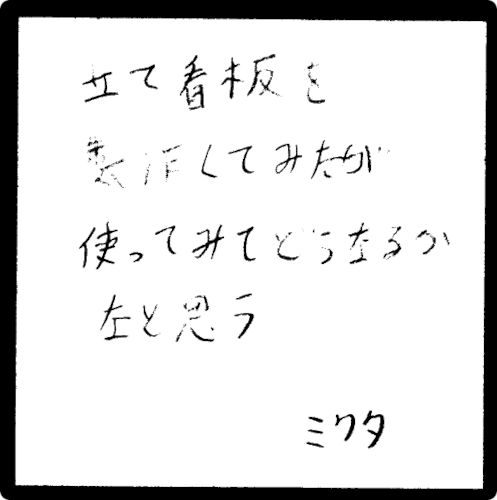 立て看板を
製作してみたが
使ってみてどうなるか
なと思う
ミワタ